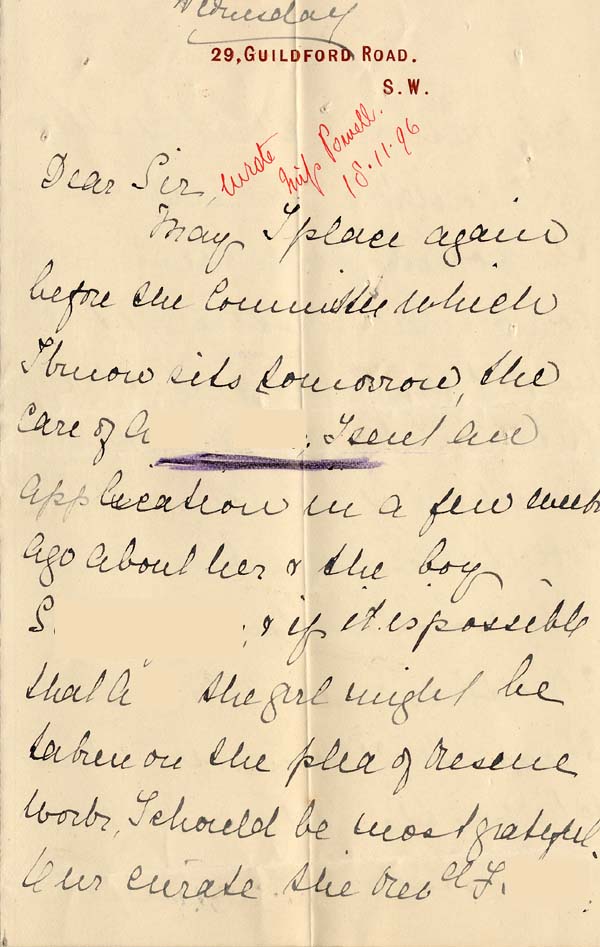 Wednesday
29, GUILDFORD ROAD.
S.W.
wrote
Miss Powell.
18.11.96
Dear Sir,
May I place again
before the Committee which
I know sits tomorrow, the
case of A
; I sent an
application in a few weeks
ago about her & the boy
S.
; & if it is possible
that A the girl might be
taken on the plea of Rescue
Work, I should be most grateful.
Our curate the Revd F.